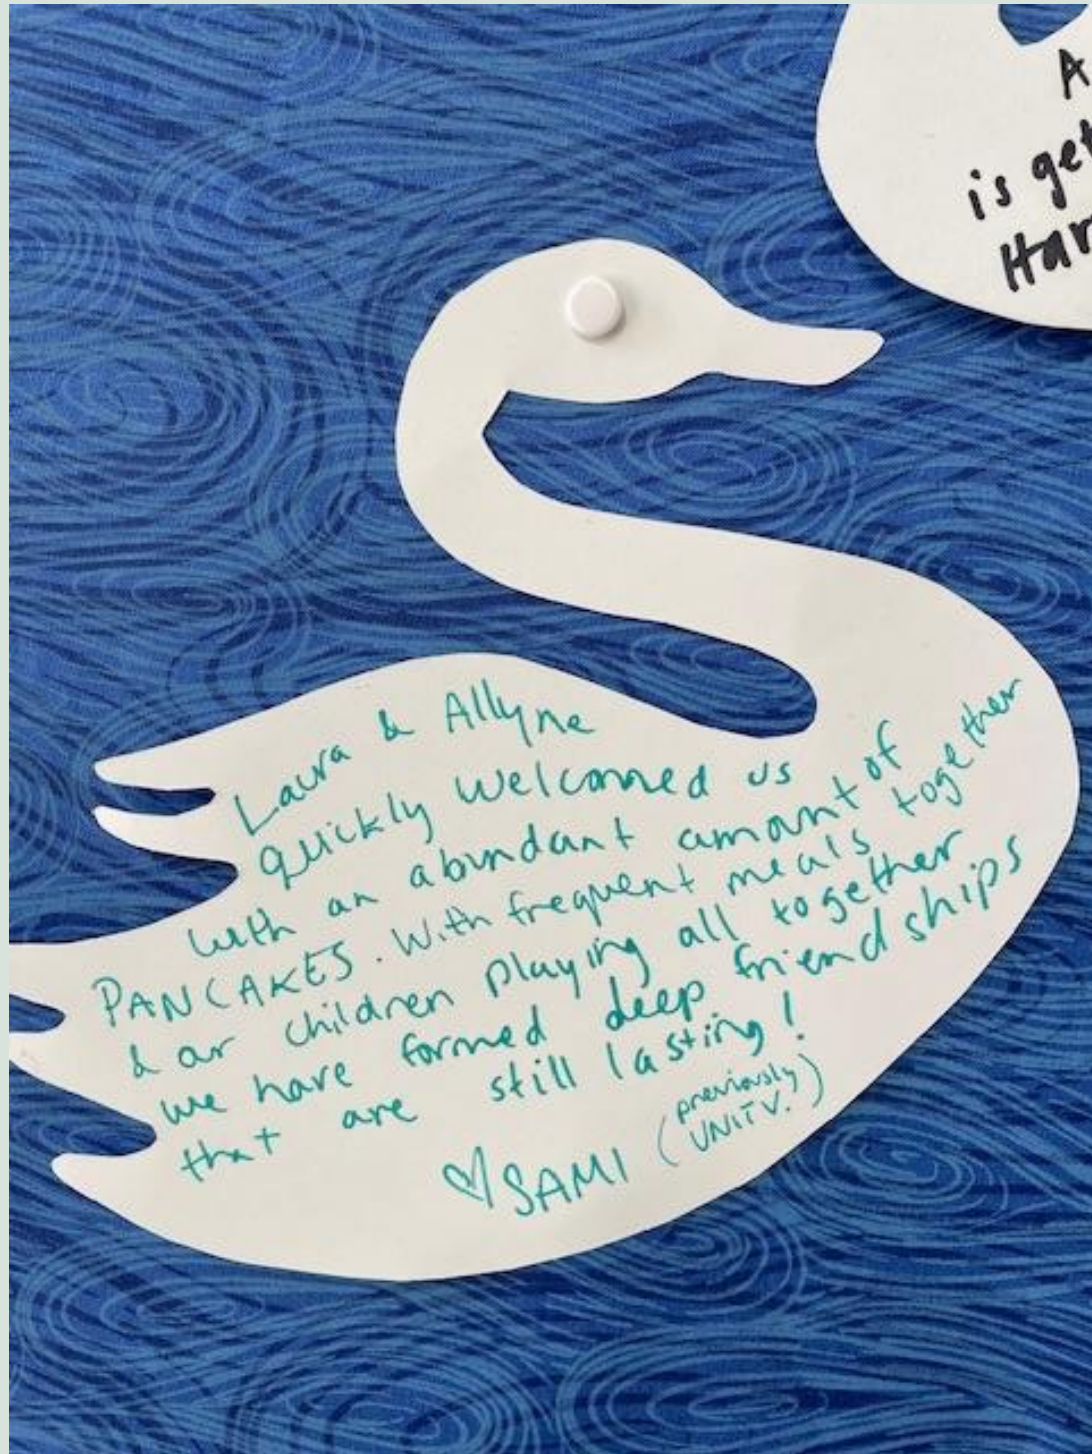 A
is ge
Har
Laura & Allyne
quickly welcomed us
with an abundant amount of
PANCAKES. With frequent meals together
& our children playing all together
we have formed deep friendships
that are still lasting!
♡ SAMI (previously
UNIT V.)